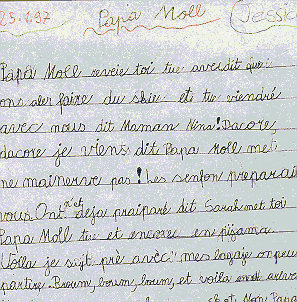 25.1.97 Papa Moll Jessic
Papa Moll reveie toi tu averdit que
ons aler faire du skie et tu viendré
avec nous dit Maman Nina! Dacore,
dacore je viens dit Papa Moll me
ne mainerve pas! Les senfon preparai
vous. Ont déja praiparé dit Sarah met toi
Papa Moll tu et encore en pijama
Voila je suit pré avec mes bagaje on peu
partire. Broum, broum, broum, et voila